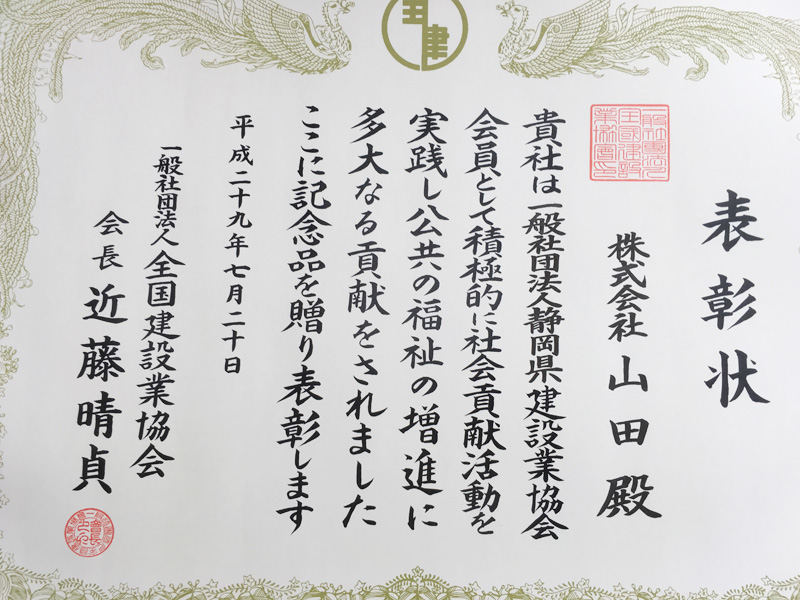 全建
表彰状
株式会社山田殿
貴社は一般社団法人静岡県建設業協会
会員として積極的に社会貢献活動を
実践し公共の福祉の増進に
多大なる貢献をされました
ここに記念品を贈り表彰します
平成二十九年七月二十日
一般社団法人全国建設業協会
会長近藤晴貞